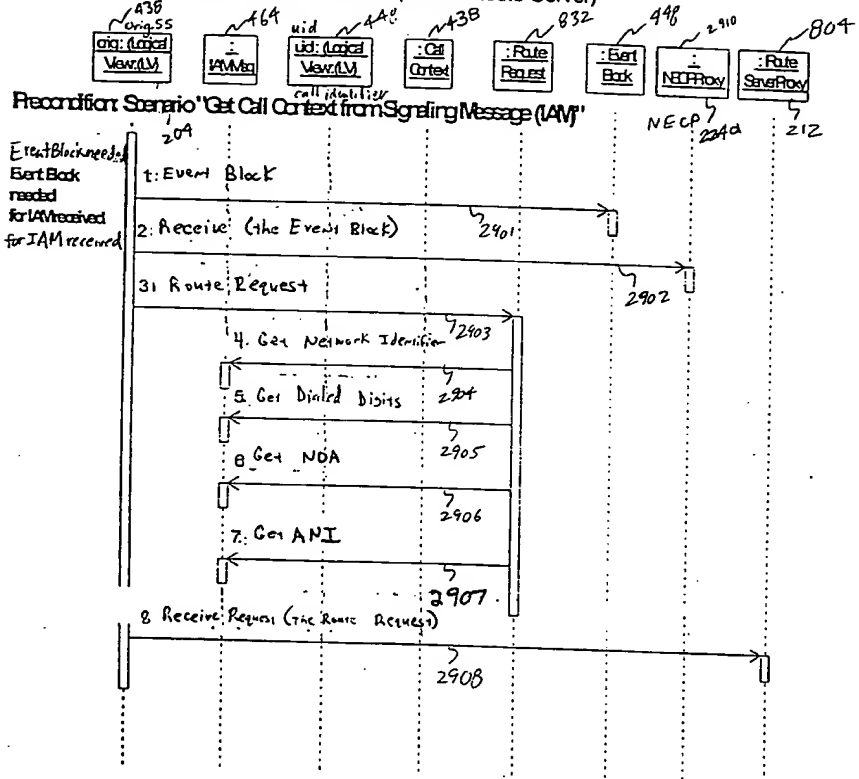 Server)
438 464 448 438 832 448 2910 804
orig.SS uid
orig: (Logical View:(LV) : IAMMsg uid: (Logical View:(LV) : Call Context : Route Request : Event Block : NECPProxy : Route ServerProxy
call identifier
Precondition: Scenario "Get Call Context from Signaling Message (IAM)"
204 NECP 224a 212
Event Block needed
Event Block
needed
for IAM received
for IAM received
1: Event Block
2901
2: Receive (the Event Block)
2902
3: Route Request
2903
4. Get Network Identifier
2904
5. Get Dialed Digits
2905
6 Get NOA
2906
7: Get ANI
2907
8 Receive Request (The Route Request)
2908